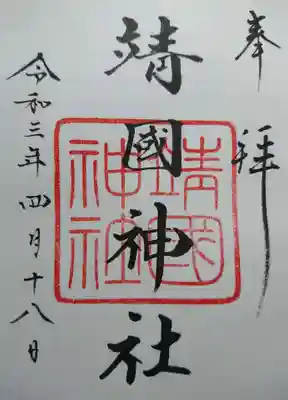 奉拝
靖國神社
靖國神社
令和三年四月十八日